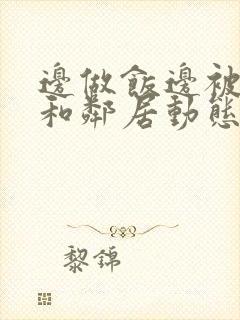 邊做飯邊被
和鄰居動態
黎錦